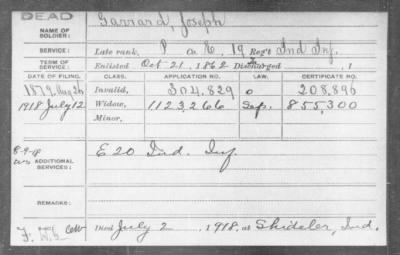 DEAD
NAME OF SOLDIER: Garrard, Joseph
SERVICE: Late rank, P Co. E, 19 Reg't Ind Inf.
TERM OF SERVICE: Enlisted Oct 21, 1862 Discharged , 1
DATE OF FILING. CLASS. APPLICATION NO. LAW. CERTIFICATE NO.
1879, Aug 26 Invalid, 304,829 208,896
1918 July 12 Widow, 1123266 Sep. 855,300
Minor,
8-9-18
ADDITIONAL SERVICES: E 20 Ind. Inf.
REMARKS:
Died July 2, 1918, at Shideler, Ind.